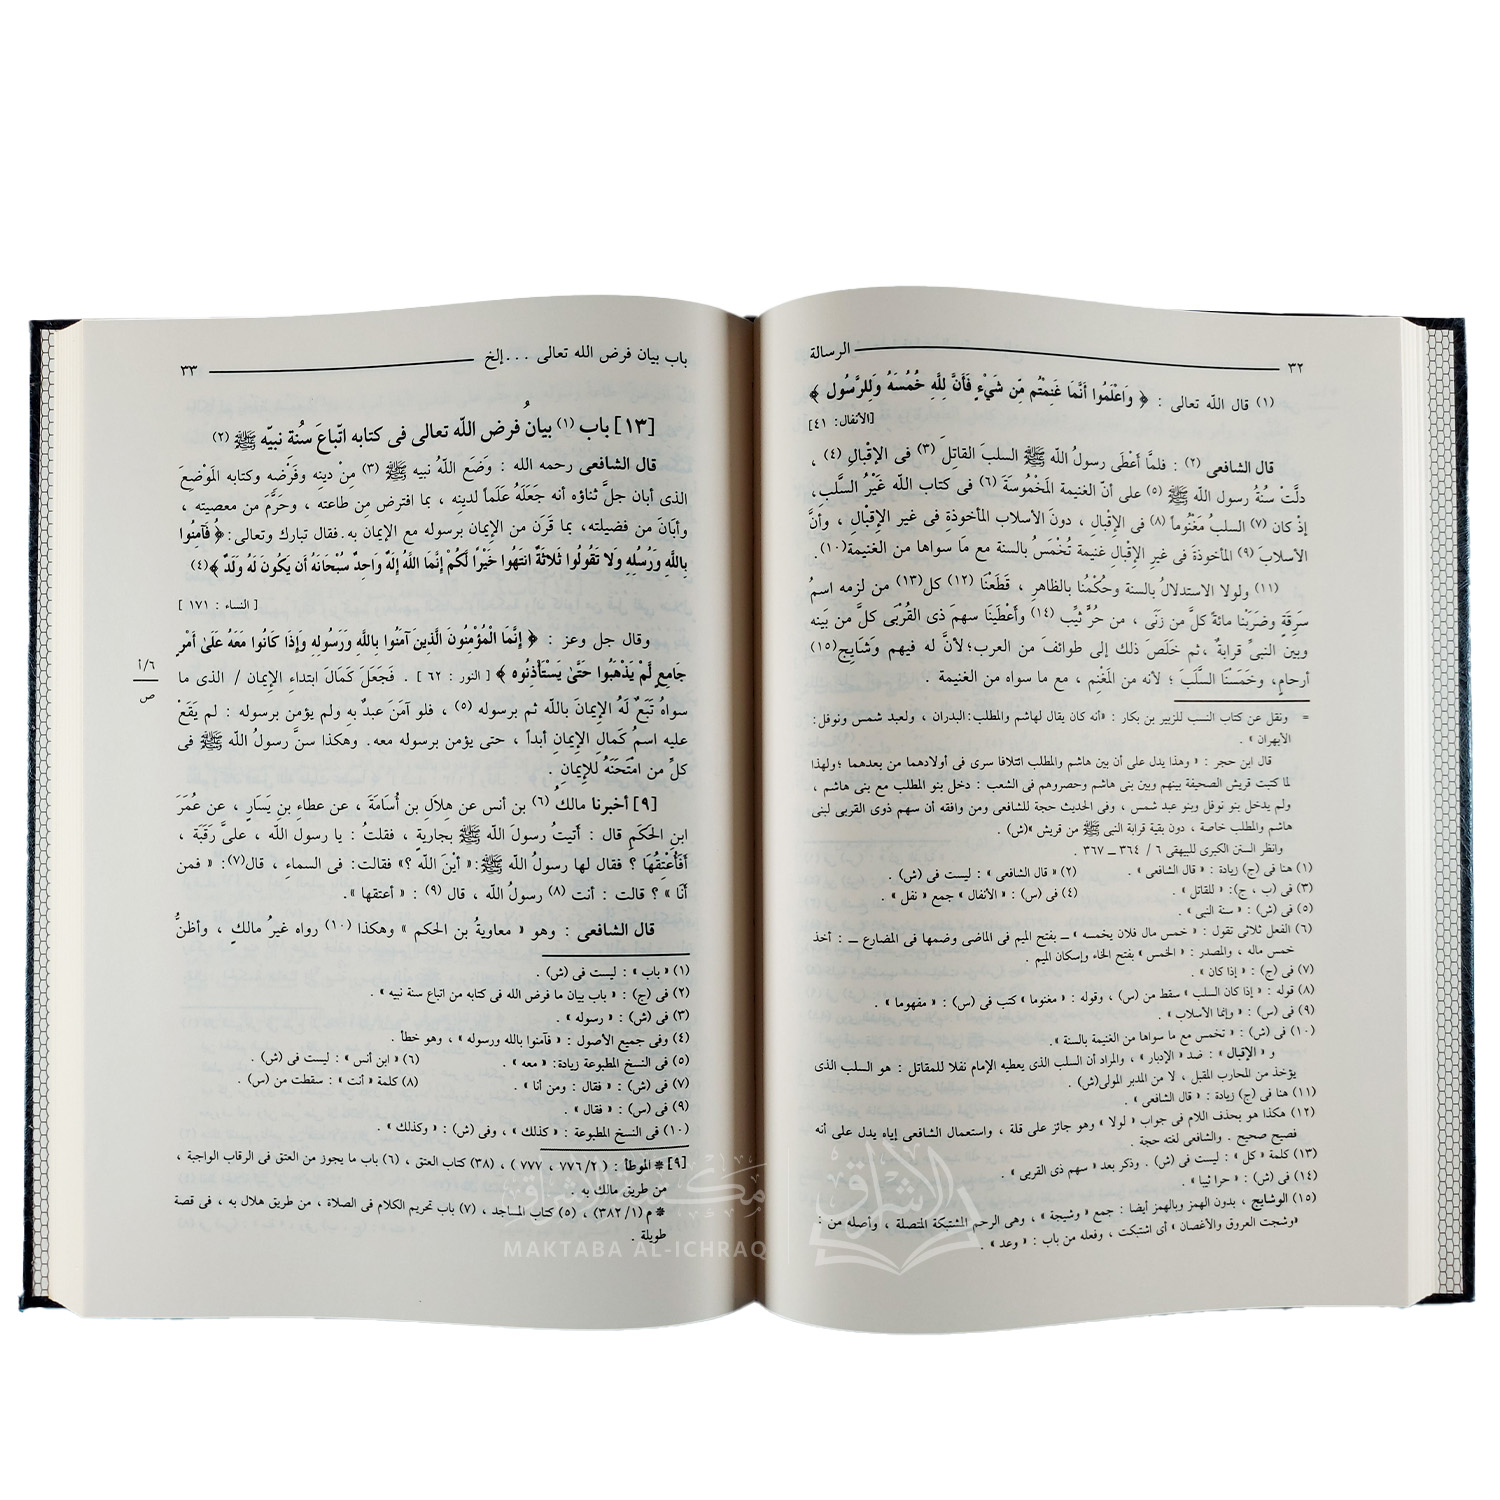 ٣٢ الرسالة
(١) قال اللّه تعالى : ﴿ وَاعْلَمُوا أَنَّمَا غَنِمْتُم مِّن شَيْءٍ فَأَنَّ لِلَّهِ خُمُسَهُ وَلِلرَّسُول ﴾
[الأنفال: ٤١]
قال الشافعى (٢) : فلمَّا أَعْطَى رسولُ اللّه ﷺ السلبَ القاتِلَ (٣) فى الإقْبالِ (٤) ،
دلَّتْ سُنةُ رسول اللّه ﷺ (٥) على أنّ الغنيمة المَخْمُوسَةَ (٦) فى كتاب اللّه غَيْرُ السَّلبِ،
إذْ كان (٧) السلبُ مَغْنُوماً (٨) فى الإقْبالِ ، دونَ الأسلاب المأخوذةِ فى غير الإقْبالِ ، وأنَّ
الأسلابَ (٩) المأخوذةَ فى غيرِ الإقْبالِ غنيمة تُخْمَسُ بالسنة مع مَا سواها من الغنيمة(١٠).
(١١) ولولا الاستدلالُ بالسنة وحُكْمُنا بالظاهرِ ، قَطَعْنَا (١٢) كل(١٣) من لزمه اسمُ
سَرِقَةٍ وضَرَبْنا مائةً كلَّ من زنَى ، من حُرٍّ ثيِّب (١٤) وأَعْطَيْنَا سهمَ ذى القُرْبَى كلَّ من بَينه
وبين النبىِّ قرابةٌ ،ثم خَلَصَ ذلك إلى طوائفَ من العرب؛لأنَّ له فيهم وَشَايِج(١٥)
أرحامٍ، وخَمَسْنَا السَّلَبَ ؛ لأنه من المَغْنِم ، مع ما سواه من الغنيمة .
= ونقل عن كتاب النسب للزبير بن بكار : «أنه كان يقال لهاشم والمطلب:البدران ، ولعبد شمس ونوفل:
الأبهران » .
قال ابن حجر : « وهذا يدل على أن بين هاشم والمطلب ائتلافا سرى فى أولادهما من بعدهما ؛ولهذا
لما كتبت قريش الصحيفة بينهم وبين بنى هاشم وحصروهم فى الشعب : دخل بنو المطلب مع بنى هاشم ،
ولم يدخل بنو نوفل وبنو عبد شمس ، وفى الحديث حجة للشافعى ومن وافقه أن سهم ذوى القربى لبنى
هاشم والمطلب خاصة ، دون بقية قرابة النبى ﷺ من قريش »(ش) .
وانظر السنن الكبرى للبيهقى ٦ / ٣٦٤ ــ ٣٦٧ .
(١) هنا فى (ج) زيادة : « قال الشافعى » . (٢) « قال الشافعى » : ليست فى (ش) .
(٣) فى (ب ، ج): « للقاتل » . (٤) فى (س) : « الأنفال » جمع « نفل » .
(٥) فى (ش) : « سنة النبى » .
(٦) الفعل ثلاثى تقول : « خمس مال فلان يخمسه » ــ بفتح الميم فى الماضى وضمها فى المضارع ــ : أخذ
خمس ماله ، والمصدر : « الخمس » بفتح الخاء وإسكان الميم .
(٧) فى (ج) : « إذا كان » .
(٨) قوله : « إذا كان السلب » سقط من (س) ، وقوله : « مغنوما » كتب فى (س) : « مفهوما » .
(٩) فى (س) : « وإنما الأسلاب » .
(١٠) فى (ش) : « تخمس مع ما سواها من الغنيمة بالسنة » .
و « الإقبال » : ضد « الإدبار » ، والمراد أن السلب الذى يعطيه الإمام نفلا للمقاتل : هو السلب الذى
يؤخذ من المحارب المقبل ، لا من المدبر المولى(ش) .
(١١) هنا فى (ج) زيادة : « قال الشافعى » .
(١٢) هكذا هو بحذف اللام فى جواب « لولا » وهو جائز على قلة ، واستعمال الشافعى إياه يدل على أنه
فصيح صحيح . والشافعى لغته حجة .
(١٣) كلمة « كل » : ليست فى (ش) . وذكر بعد « سهم ذى القربى » .
(١٤) فى (ش) : « حرا ثيبا » .
(١٥) الوشايج ، بدون الهمز وبالهمز أيضا : جمع « وشيجة » ، وهى الرحم المشتبكة المتصلة ، وأصله من :
«وشجت العروق والأغصان » أى اشتبكت ، وفعله من باب : « وعد » .
باب بيان فرض الله تعالى . . . إلخ ٣٣
[١٣] باب (١) بيانُ فَرض اللّه تعالى فى كتابه اتّباعَ سُنةِ نبيّه ﷺ (٢)
قال الشافعى رحمه الله : وَضَع اللّهُ نبيه ﷺ (٣) مِنْ دينِه وفَرْضِه وكتابه المَوْضِعَ
الذى أبان جلَّ ثناؤه أنه جَعَلَهُ عَلَماً لدينِهِ ، بما افترض مِن طاعته ، وحَرَّمَ من معصيته ،
وأبَانَ من فضيلته، بما قَرَن من الإيمان برسوله مع الإيمان به.فقال تبارك وتعالى:﴿ فَآمِنُوا
بِاللَّهِ وَرُسُلِهِ وَلا تَقُولُوا ثَلاثَةٌ انتَهُوا خَيْراً لَّكُمْ إِنَّمَا اللَّهُ إِلَهٌ وَاحِدٌ سُبْحَانَهُ أَن يَكُونَ لَهُ وَلَدٌ ﴾(٤)
[ النساء : ١٧١ ]
وقال جل وعز : ﴿ إِنَّمَا الْمُؤْمِنُونَ الَّذِينَ آمَنُوا بِاللَّهِ وَرَسُولِهِ وَإِذَا كَانُوا مَعَهُ عَلَىٰ أَمْرٍ
جَامِعٍ لَّمْ يَذْهَبُوا حَتَّىٰ يَسْتَأْذِنُوه ﴾ [ النور : ٦٢ ] . فَجَعَلَ كَمَالَ ابتداءِ الإيمان / الذى ما
٦/أ
ص
سواهُ تَبَعٌ لَهُ الإيمانَ باللّه ثم برسوله (٥) ، فلو آمَنَ عبدٌ بِهِ ولم يؤمن برسوله : لم يَقَعْ
عليه اسمُ كَمالِ الإيمانِ أبداً ، حتى يؤمن برسوله معه. وهكذا سنَّ رسولُ اللّه ﷺ فى
كلِّ من امْتَحَنَهُ للإيمَانِ .
[٩] أخبرنا مالكٌ (٦) بن أنس عن هِلَالِ بن أُسَامَةَ ، عن عطاءِ بنِ يَسَارٍ، عن عُمَرَ
ابنِ الحَكَمِ قال : أتيتُ رسولَ اللّه ﷺ بجاريةٍ ، فقلتُ : يا رسول اللّه ، علىَّ رَقَبَة ،
أَفَأَعْتِقُهَا ؟ فقال لها رسولُ اللّه ﷺ:« أَيْنَ اللّه ؟» فقالت: فى السماءِ ، قال(٧): « فمن
أنَا » ؟ قالت : أنت (٨) رسولُ اللّه ، قال (٩) : « أعتقها ».
قال الشافعى : وهو « معاويةُ بن الحكم » وهكذا (١٠) رواه غيرُ مالكٍ ، وأظنُّ
(١) « باب » : ليست فى (ش) .
(٢) فى (ج) : « باب بيان ما فرض الله فى كتابه من اتباع سنة نبيه » .
(٣) فى (ش) : « رسوله » .
(٤) وفى جميع الأصول : « فآمنوا بالله ورسوله » ، وهو خطأ .
(٥) فى النسخ المطبوعة زيادة: « معه » . (٦) « ابن أنس » : ليست فى (ش) .
(٧) فى (ش) : « فقال : ومن أنا » . (٨) كلمة « أنت » : سقطت من (س) .
(٩) فى (س) : « فقال » .
(١٠) فى النسخ المطبوعة : « كذلك » ، وفى (ش) : « وكذلك » .
[٩] * الموطأ : ( ٢/ ٧٧٦ ، ٧٧٧ ) ، (٣٨) كتاب العتق ، (٦) باب ما يجوز من العتق فى الرقاب الواجبة ،
من طريق مالك به .
* م (١/ ٣٨٢) ، (٥) كتاب المساجد ، (٧) باب تحريم الكلام فى الصلاة ، من طريق هلال به ، فى قصة
طويلة .
مكتبة الإشراق
MAKTABA AL-ICHRAQ
الإشراق